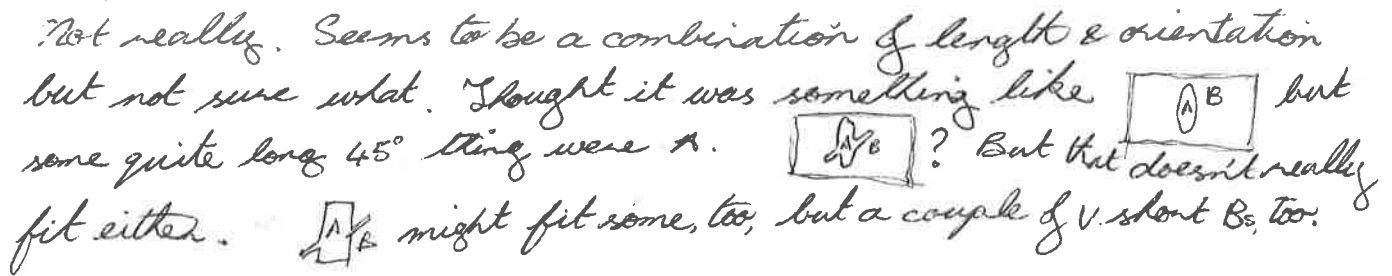 Not really. Seems to be a combination of length & orientation
but not sure what. Thought it was something like A B but
some quite long 45° thing were A. A B ? But that doesn't really
fit either. A B might fit some, too, but a couple of v. short Bs, too.